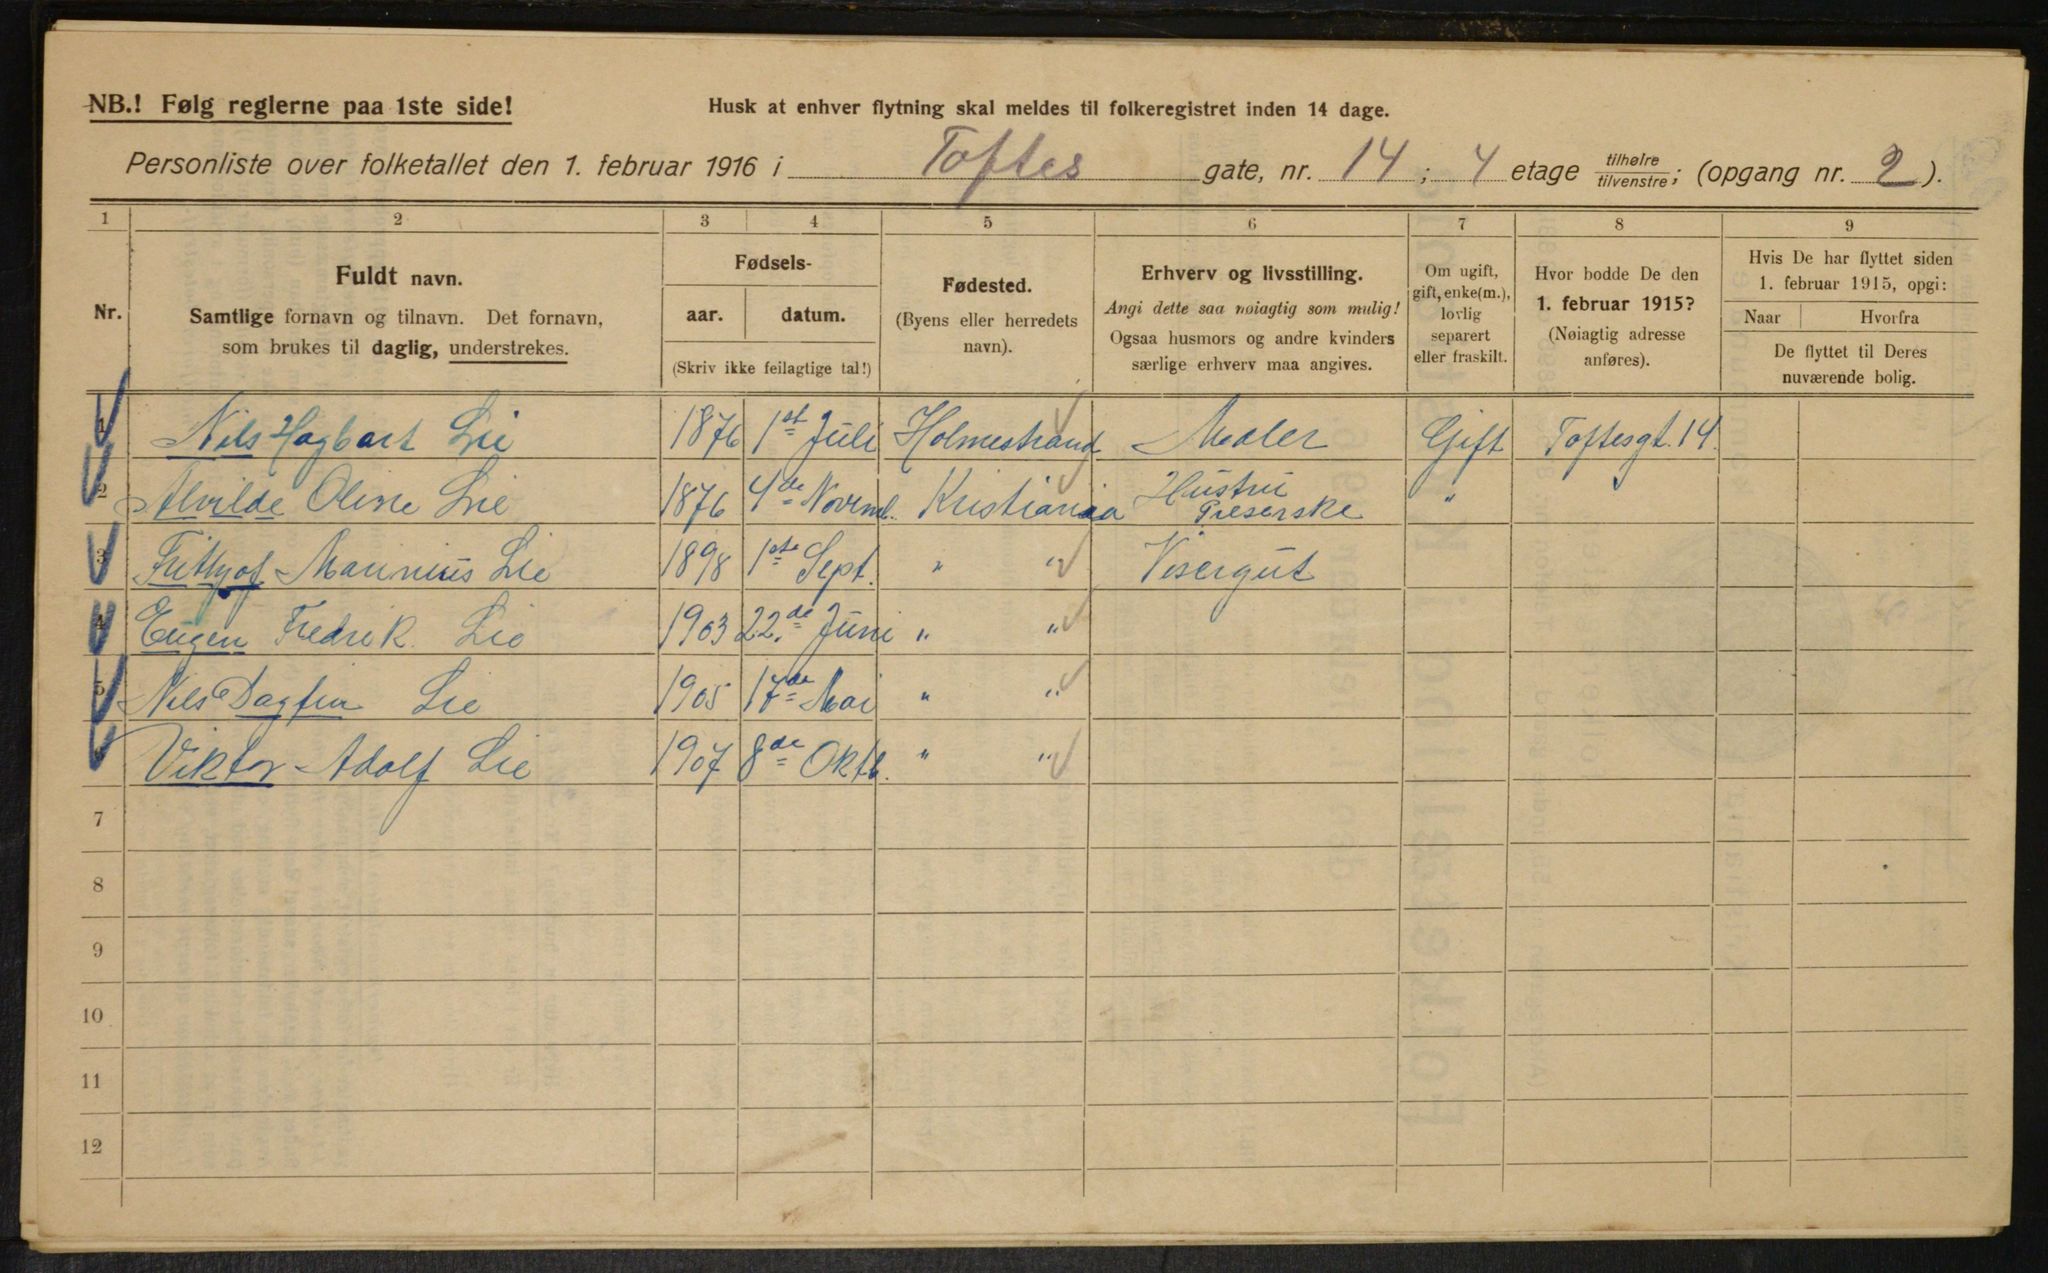 NB.! Følg reglerne paa 1ste side!
Husk at enhver flytning skal meldes til folkeregistret inden 14 dage.
Personliste over folketallet den 1. februar 1916 i Toftes gate, nr. 14; 4 etage tilhøire / tilvenstre; (opgang nr. 2).
1 2 3 4 5 6 7 8 9
Nr.
Fuldt navn.
Samtlige fornavn og tilnavn. Det fornavn,
som brukes til daglig, understrekes.
Fødsels-
aar. datum.
(Skriv ikke feilagtige tal!)
Fødested.
(Byens eller herredets
navn).
Erhverv og livsstilling.
Angi dette saa nøiagtig som mulig!
Ogsaa husmors og andre kvinders
særlige erhverv maa angives.
Om ugift,
gift, enke(m.),
lovlig
separert
eller fraskilt.
Hvor bodde De den
1. februar 1915?
(Nøiagtig adresse
anføres).
Hvis De har flyttet siden
1. februar 1915, opgi:
Naar Hvorfra
De flyttet til Deres
nuværende bolig.
1 Nils Hagbart Lie 1876 1st Juli Holmestrand Maler Gift Toftesgt. 14.
2 Alvilde Oline Lie 1876 4de Novemb. Kristiania Hustru "
Preserske
3 Frithjof Marinius Lie 1898 1ste Sept. " " Visergut
4 Eugen Fredrik Lie 1903 22.de Juni " "
5 Nils Dagfin Lie 1905 17de Mai " "
Viktor Adolf Lie 1907 8de Oktb. " "
7
8
9
10
11
12